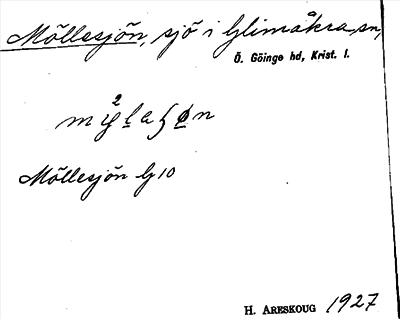 Möllesjön, sjö i Glimåkra sn,
Ö. Göinge hd, Krist. l.
Möllesjön G 10
H. ARESKOUG 1927